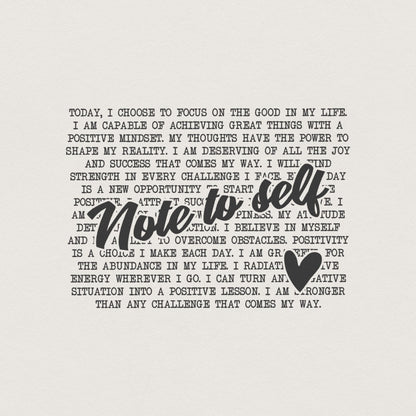 TODAY, I CHOOSE TO FOCUS ON THE GOOD IN MY LIFE.
I AM CAPABLE OF ACHIEVING GREAT THINGS WITH A
POSITIVE MINDSET. MY THOUGHTS HAVE THE POWER TO
SHAPE MY REALITY. I AM DESERVING OF ALL THE JOY
AND SUCCESS THAT COMES MY WAY. I WILL FIND
STRENGTH IN EVERY CHALLENGE I FACE. DAY
IS A NEW OPPORTUNITY TO START
Note to self
MY
I BELIEVE IN MYSELF
TO OVERCOME OBSTACLES. POSITIVITY
IS A CHOICE I MAKE EACH DAY. I AM FOR
THE ABUNDANCE IN MY LIFE. I
ENERGY WHEREVER I GO. I CAN TURN
SITUATION INTO A POSITIVE LESSON. I AM STRONGER
THAN ANY CHALLENGE THAT COMES MY WAY.